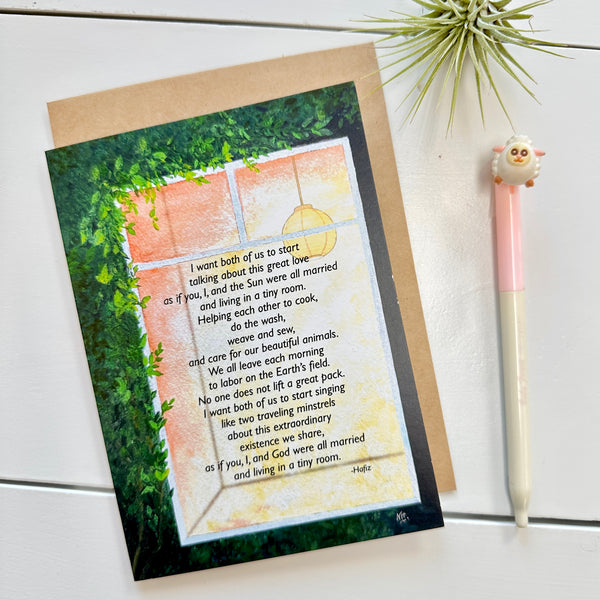 I want both of us to start
talking about this great love
as if you, I, and the Sun were all married
and living in a tiny room.
Helping each other to cook,
do the wash,
weave and sew,
and care for our beautiful animals.
We all leave each morning
to labor on the Earth's field.
No one does not lift a great pack.
I want both of us to start singing
like two traveling minstrels
about this extraordinary
existence we share,
as if you, I, and God were all married
and living in a tiny room.
-Hafiz